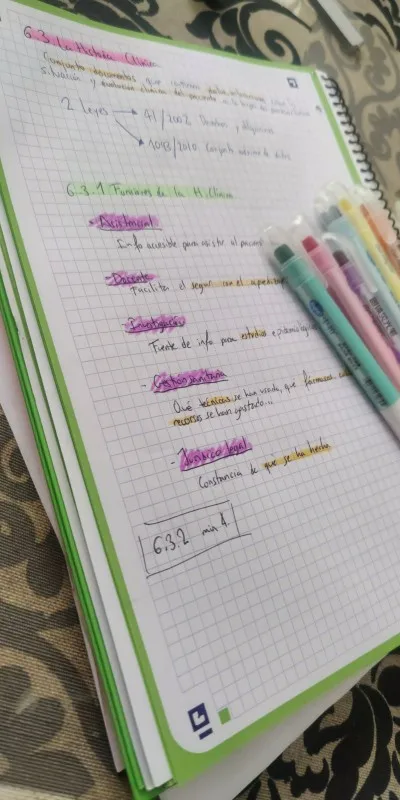 6.3. La Historia Clínica
Conjunto documentos que contienen datos, sobre
situación y evolución clínica del paciente a lo largo del
2 leyes → 41/2002 Derechos y obligaciones
→ 1093/2010 Conjunto mínimo de datos
6.3.1 Funciones de la H. Clínica
- Asistencial
Info accesible para asistir al paciente
- Docente
Facilita el seguir con el aprendizaje
- Investigación
Fuente de info para estudios epidemiológicos
- Gestión sanitaria
Qué técnicas se han usado, qué fármacos,
recursos se han gastado...
- Jurídico legal
Constancia de que se ha hecho
6.3.2 min 4.